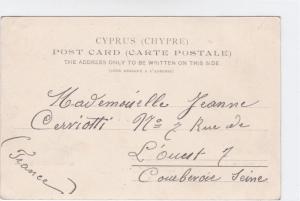 CYPRUS (CHYPRE)
POST CARD (CARTE POSTALE)
THE ADDRESS ONLY TO BE WRITTEN ON THIS SIDE
(CÔTÉ RÉSERVÉ A L'ADRESSE)
Mademoiselle Jeanne
Cerviotti No 7 Rue de
L'Ouest 7
(France)
Courbevoie Seine